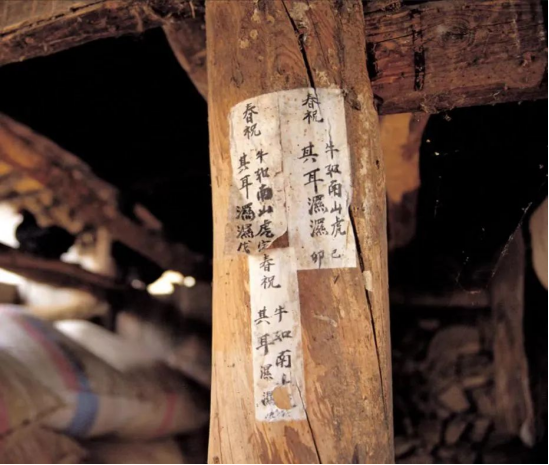 春祝
牛和南山虎 己
其耳濕濕 卯
春祝
牛和南山虎
其耳濕濕 戊
春祝
牛和南山
其耳濕